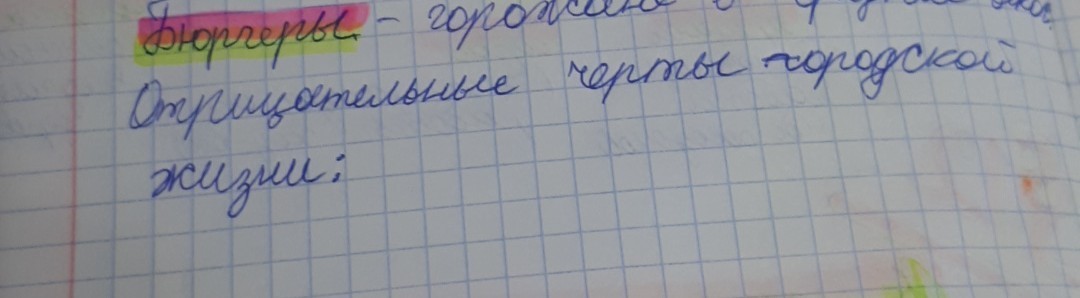 Бюргеры – горожане в
Отрицательные черты городской
жизни: